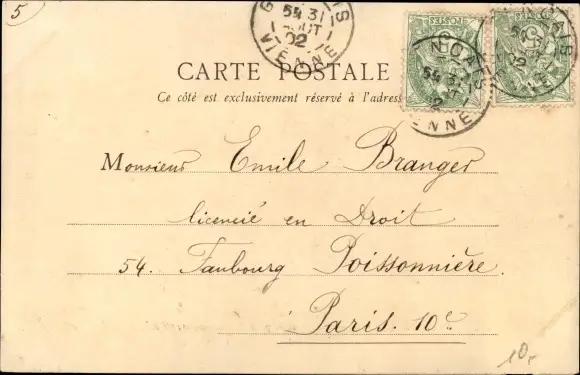 5
CARTE POSTALE
Ce côté est exclusivement réservé à l'adresse
Monsieur Emile Branger
licencié en Droit
54. Faubourg Poissonnière
Paris. 10e
10
54 31
AOUT
02
VIENNE